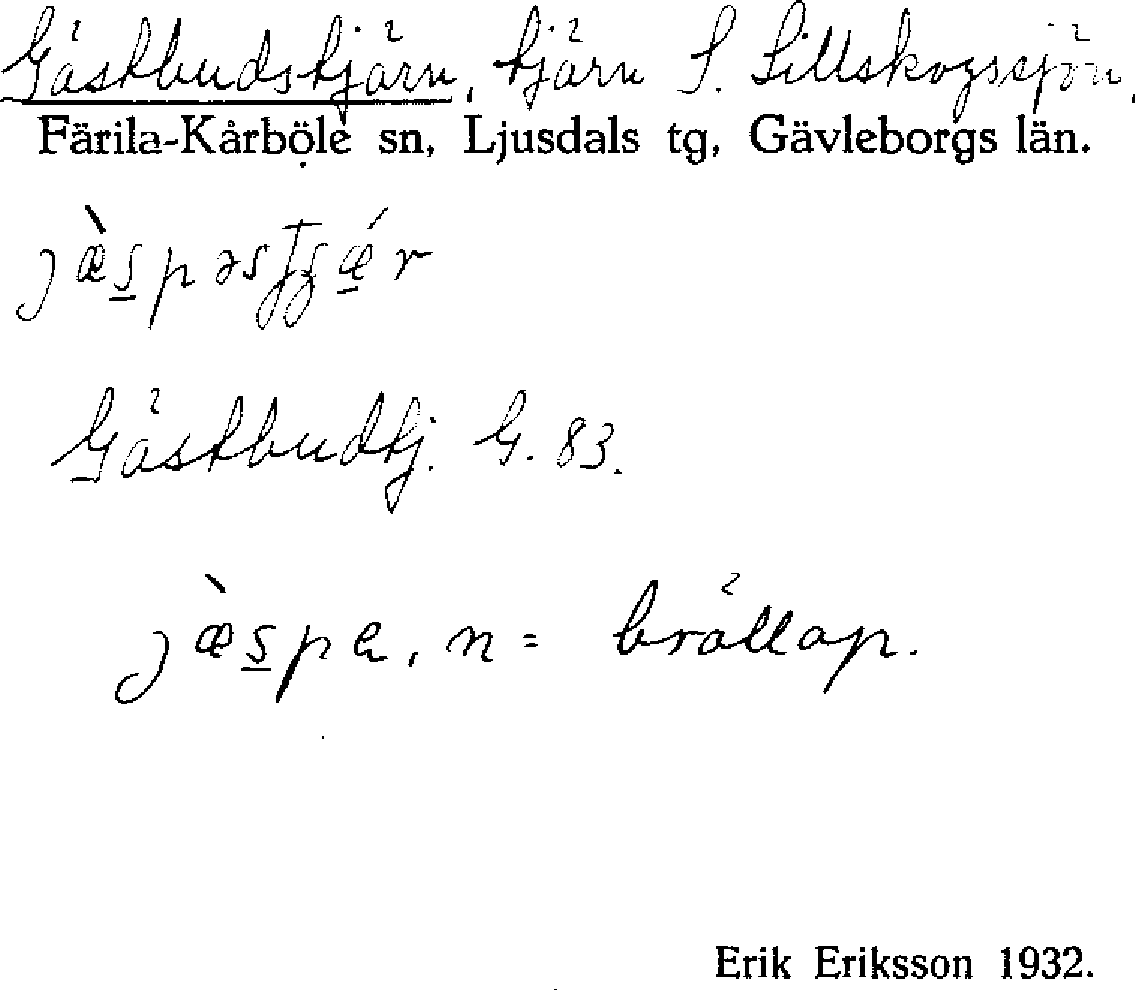 Gästbudstjärn, tjärn S. Sillskogssjön,
Färila-Kårböle sn, Ljusdals tg, Gävleborgs län.
Gästbudtj. G. 83.
n = bröllop.
Erik Eriksson 1932.